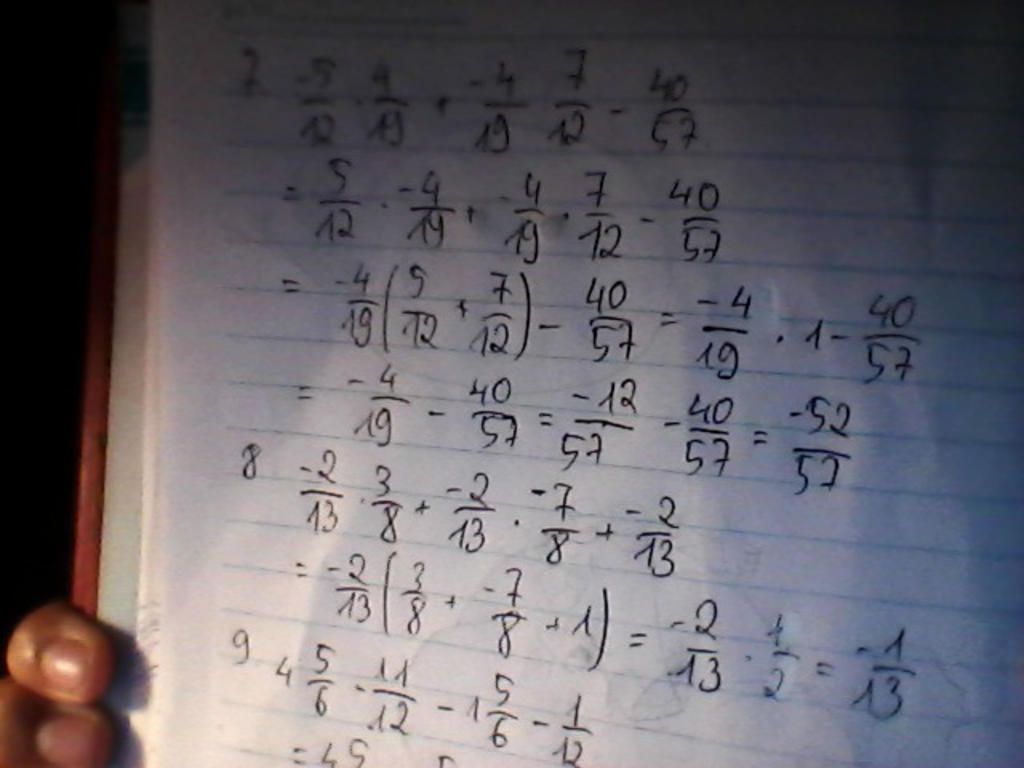 7 -5/12 · 4/19 + -4/19 · 7/12 - 40/57
= 5/12 · -4/19 + -4/19 · 7/12 - 40/57
= -4/19 (5/12 + 7/12) - 40/57 = -4/19 · 1 - 40/57
= -4/19 - 40/57 = -12/57 - 40/57 = -52/57
8 -2/13 · 3/8 + -2/13 · -7/8 + -2/13
= -2/13 (3/8 + -7/8 + 1) = -2/13 · 1/2 = -1/13
9 4 5/6 - 11/12 - 1 5/6 - 1/12
= 4 5